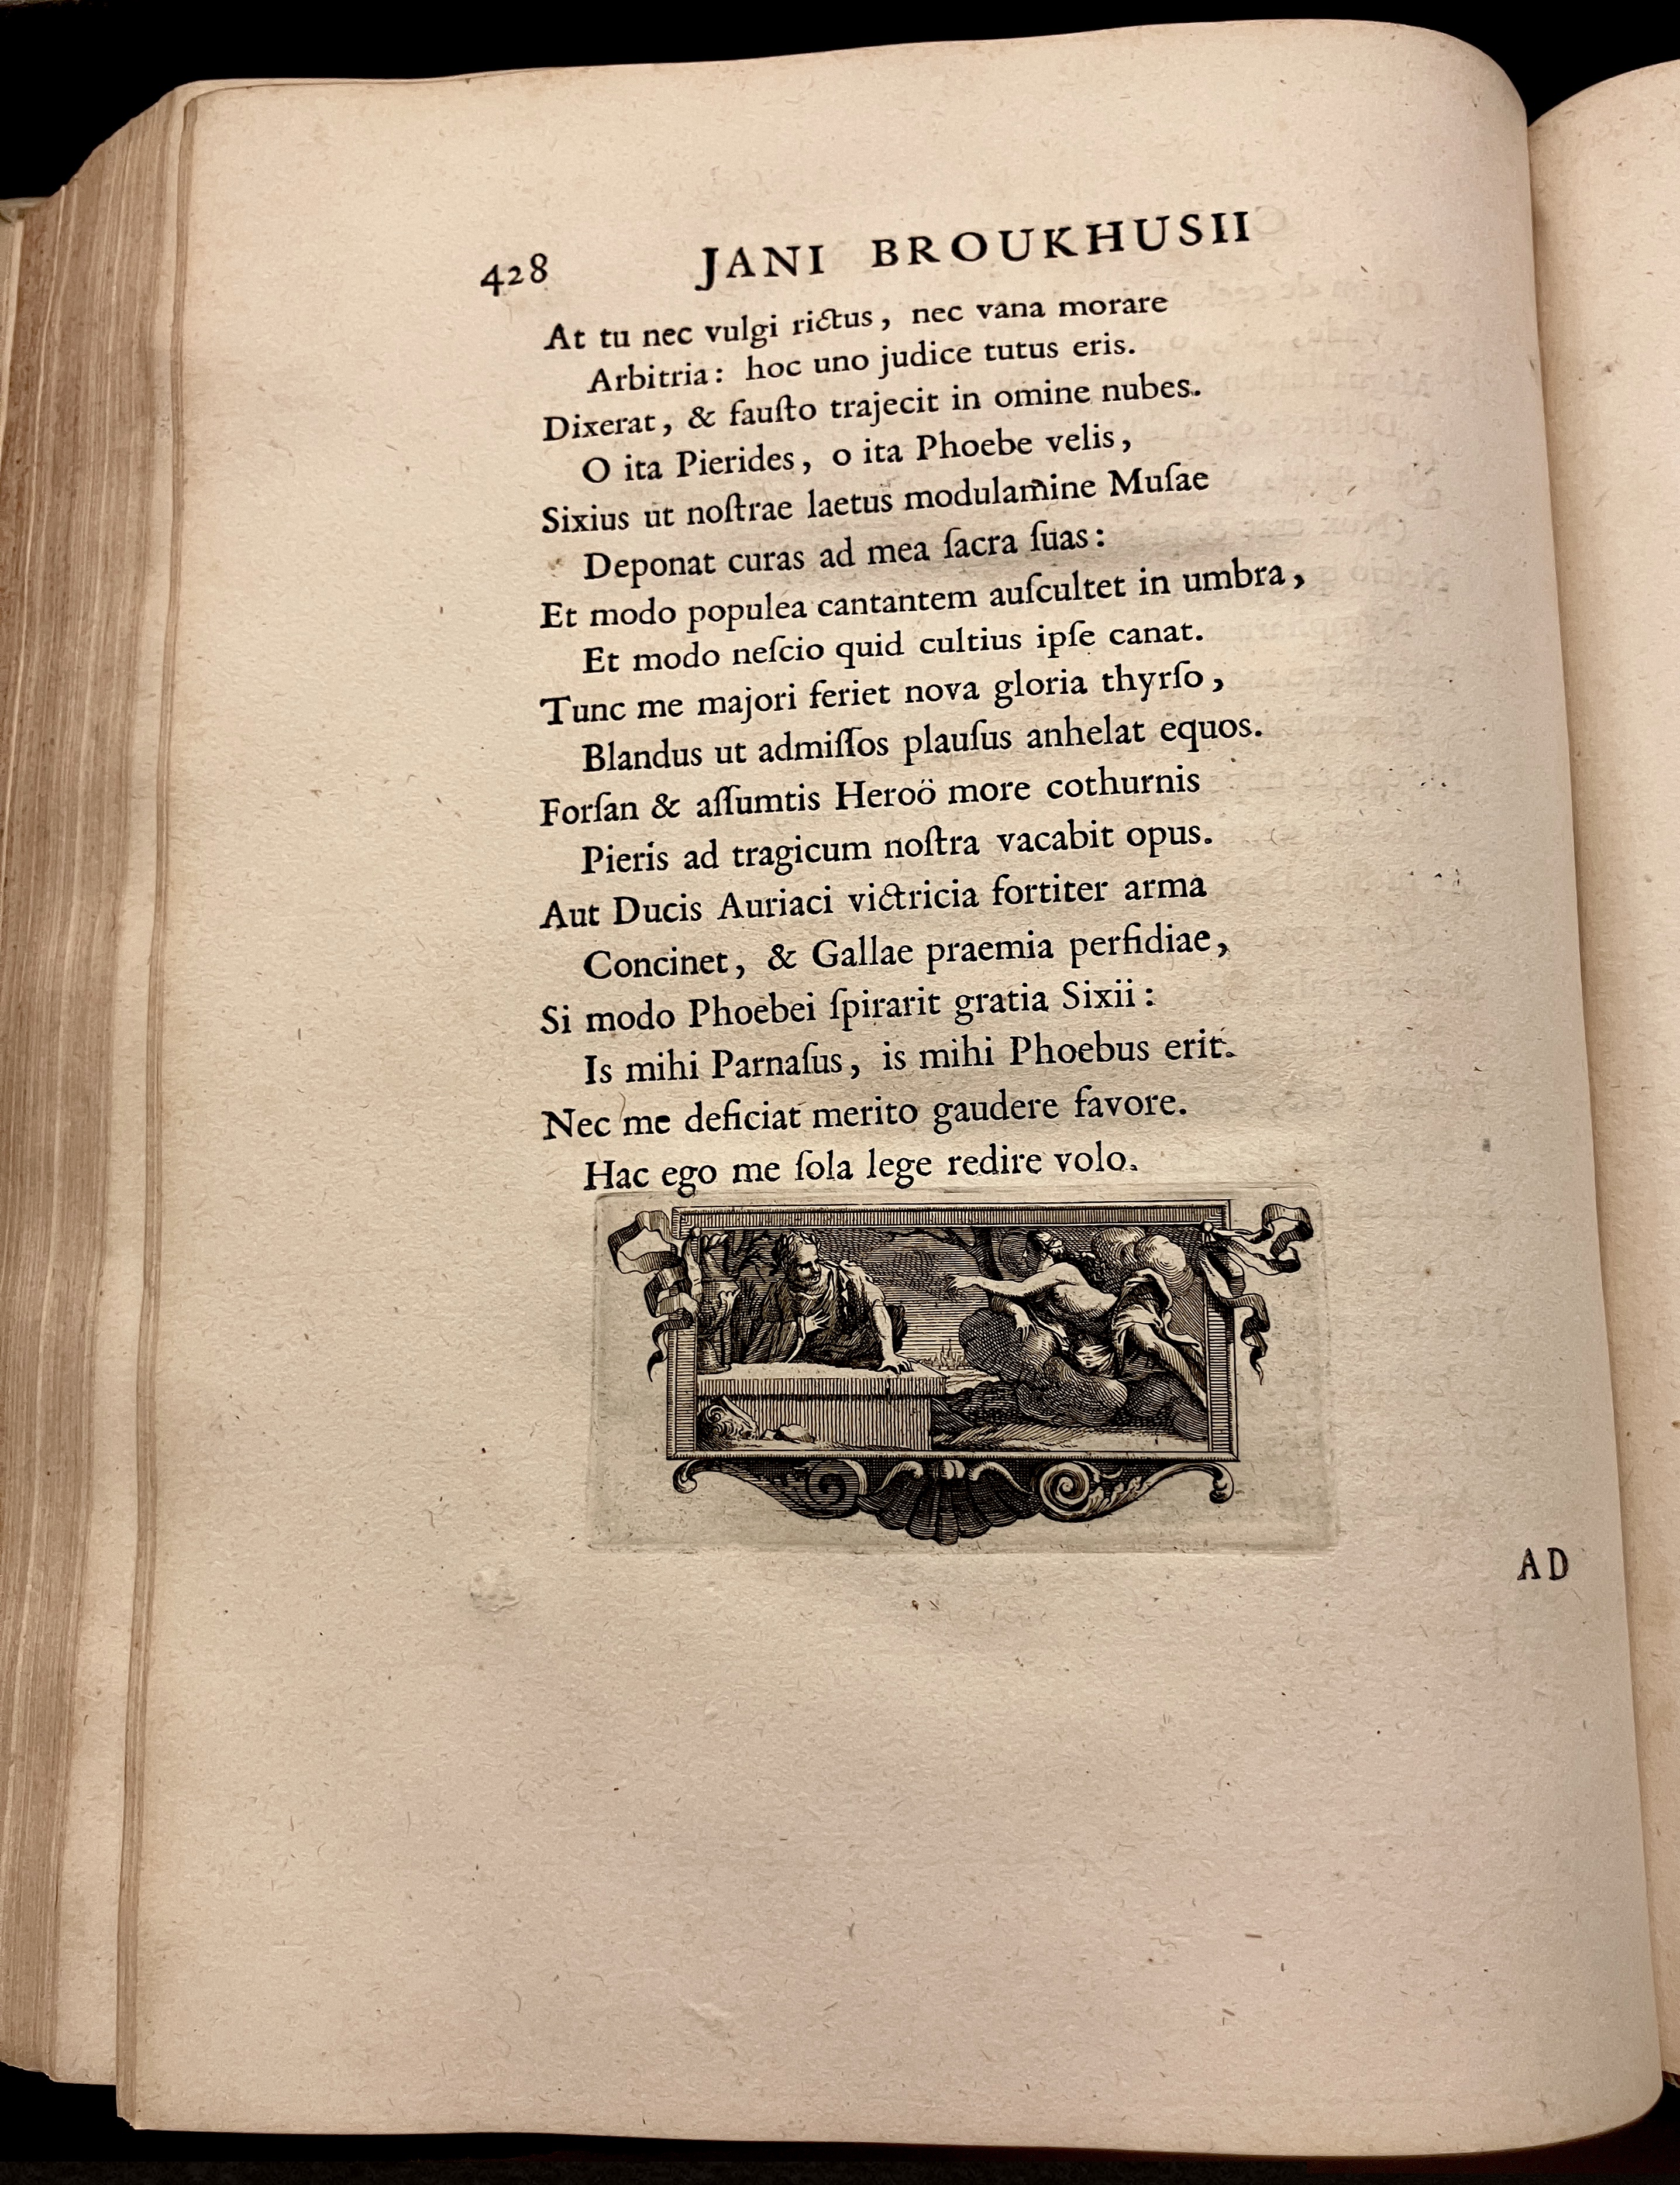 428 JANI BROUKHUSII
At tu nec vulgi rictus, nec vana morare
Arbitria: hoc uno judice tutus eris.
Dixerat, & fauſto trajecit in omine nubes.
O ita Pierides, o ita Phoebe velis,
Sixius ut noſtrae laetus modulamine Muſae
Deponat curas ad mea ſacra ſuas:
Et modo populea cantantem auſcultet in umbra,
Et modo neſcio quid cultius ipſe canat.
Tunc me majori feriet nova gloria thyrſo,
Blandus ut admiſſos plauſus anhelat equos.
Forſan & aſſumtis Heroö more cothurnis
Pieris ad tragicum noſtra vacabit opus.
Aut Ducis Auriaci victricia fortiter arma
Concinet, & Gallae praemia perfidiae,
Si modo Phoebei ſpirarit gratia Sixii:
Is mihi Parnaſus, is mihi Phoebus erit.
Nec me deficiat merito gaudere favore.
Hac ego me ſola lege redire volo.
AD